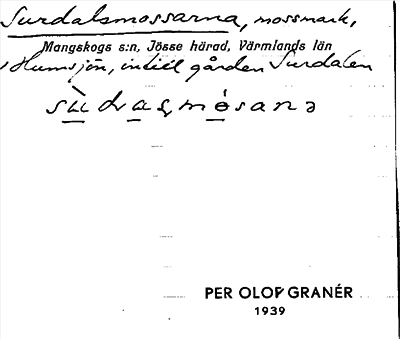 Surdalsmossarna, mossmark,
Mangskogs s:n, Jösse härad, Värmlands län
Humsjön, intill gården Surdalen
PER OLOF GRANÉR
1939